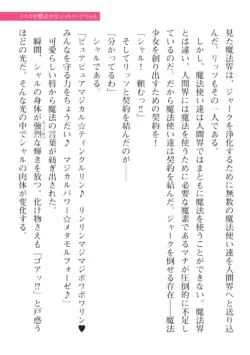 メスガキ魔法少女シャル・リッツちゃん
見た魔界は、ジャークを浄化するために無数の魔法使い達を人間界へと送り込
んだ。リッツもその一人である。
しかし、魔法使い達は人間界ではまともに魔法を使うことができない。魔法界
とは違い、人間界には魔法を使うために必要な魔素であるマナが圧倒的に不足し
ているのだ。だから魔法使い達は契約を結んだ。ジャークを倒せる存在――魔法
少女を創り出すための契約を！
「シャル！　頼むっ！」
「分かってるわ」
そしてリッツと契約を結んだのが――
シャルである。
「ピュアピュアマジカル☆ティンクルリン♪　リンリンマジマジポワポワリン♥
みんなを守る力をちょうだい♪　マジカルパワー☆メタモルフォーゼ♪」
可愛らしい唇から魔法の言葉が紡ぎ出された。
瞬間、シャルの身体が強烈な輝きを放つ。化け物さえも「ゴアッ!?」と戸惑う
ほどの光だ。そんな光の中でシャルの肉体が変化する。